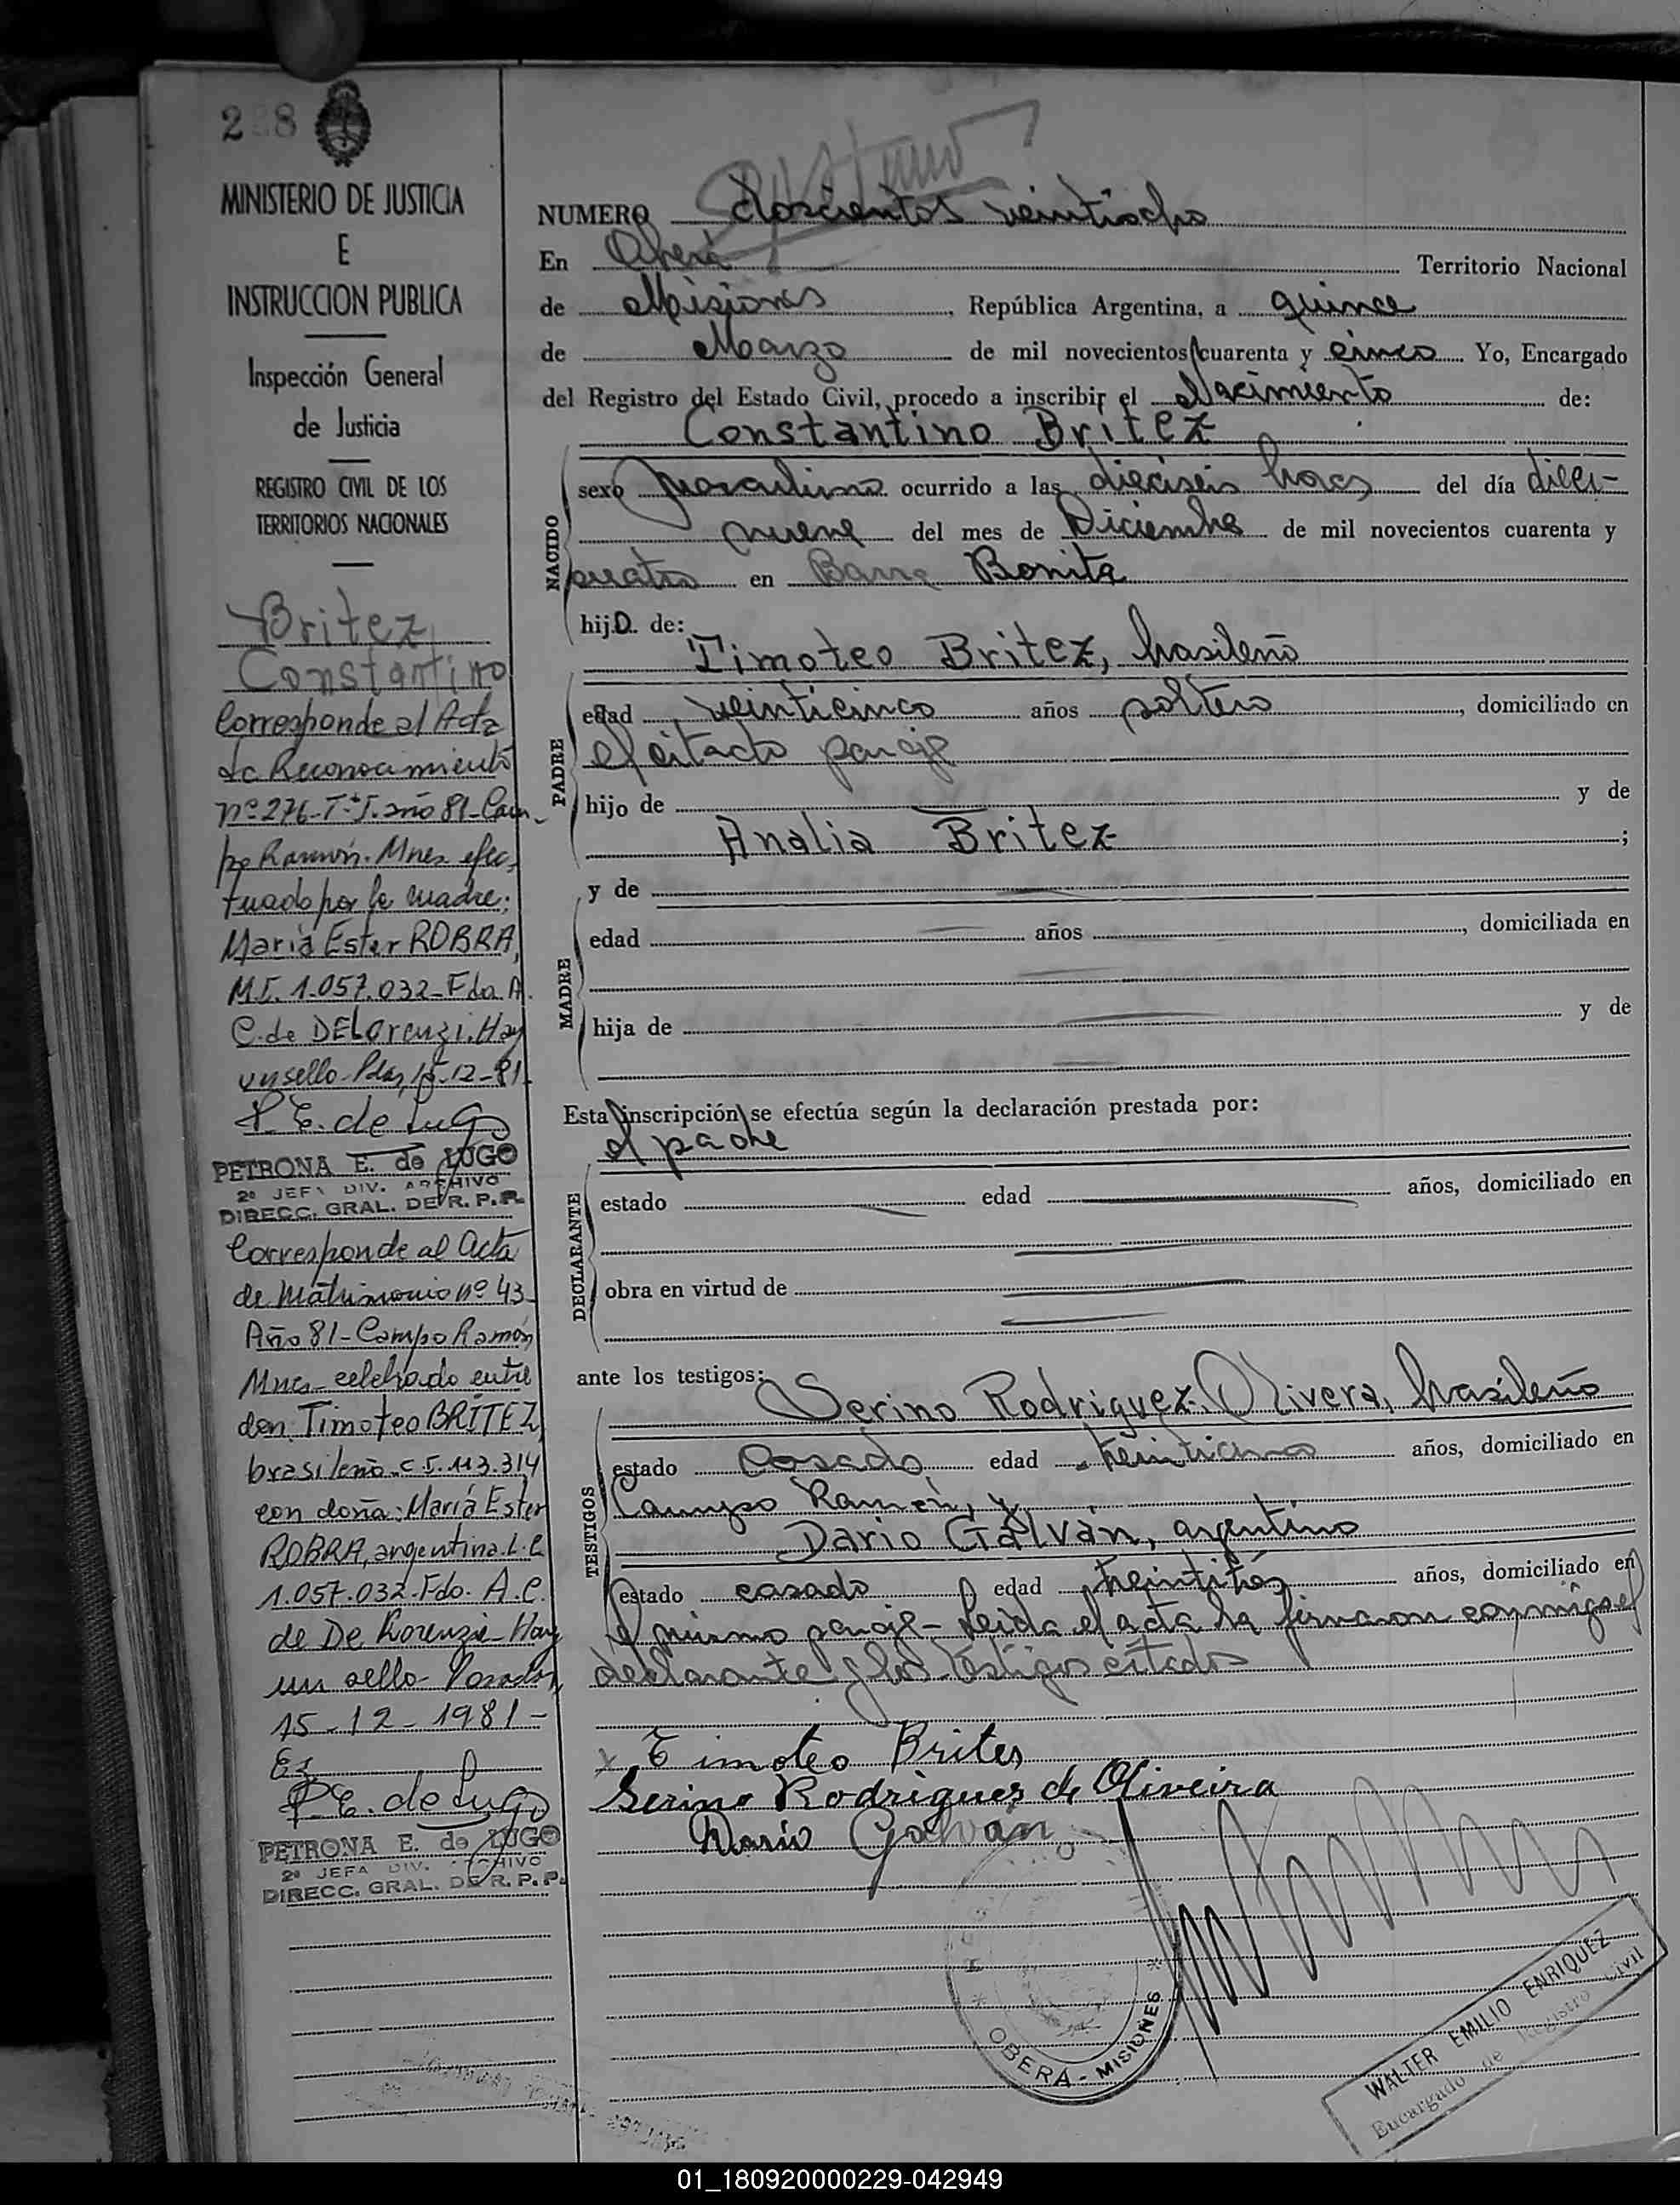 228
MINISTERIO DE JUSTICIA
E
INSTRUCCION PUBLICA
Inspección General
de Justicia
REGISTRO CIVIL DE LOS
TERRITORIOS NACIONALES
Britez
Constantino
Corresponde al Acta
de Reconocimiento
nº 276-Tº I. año 81-Cam-
po Ramón. Mnes efec-
tuado por la madre:
María Ester ROBRA,
M.I. 1.057.032-Fdo. A.
C. de DELorenzi. Hay
un sello-Pdas, 15-12-81.
P.E. de Lugo
PETRONA E. de LUGO
2ª JEFA DIV. ARCHIVO
DIRECC. GRAL. DE R. P. P.
Corresponde al Acta
de Matrimonio nº 43
Año 81-Campo Ramón
Mnes-celebrado entre
don: Timoteo BRITEZ,
brasileño. C.I. 113.314
con doña: María Ester
ROBRA, argentina. L.C.
1.057.032-Fdo. A.C.
de De Lorenzi-Hay
un sello-Posadas,
15-12-1981-
P.E. de Lugo
PETRONA E. de LUGO
2ª JEFA DIV. ARCHIVO
DIRECC. GRAL. DE R. P. P.
NUMERO doscientos veintiocho
En Oberá Territorio Nacional
de Misiones, República Argentina, a quince
de Marzo de mil novecientos cuarenta y cinco Yo, Encargado
del Registro del Estado Civil, procedo a inscribir el Nacimiento de:
Constantino Britez
NACIDO
sexo masculino ocurrido a las dieciseis horas del día dieci-
nueve del mes de Diciembre de mil novecientos cuarenta y
cuatro en Barra Bonita
hijo de:
Timoteo Britez, brasileño
PADRE
edad veinticinco años soltero, domiciliado en
el citado paraje
hijo de y de
Analia Britez;
y de
MADRE
edad años, domiciliada en
hija de y de
Esta inscripción se efectúa según la declaración prestada por:
el padre
DECLARANTE
estado edad años, domiciliado en
obra en virtud de
ante los testigos:
Serino Rodriguez Olivera, brasileño
TESTIGOS
estado casado edad años, domiciliado en
Campo Ramón, y
Dario Galván, argentino
estado casado edad treintitrés años, domiciliado en
el mismo paraje- Leida el acta la firmaron conmigo el
declarante y los testigos citados
x Timoteo Brites
Serino Rodrigues de Oliveira
Dario Galván
OBERA - MISIONES
WALTER EMILIO ENRIQUEZ
Encargado de Registro Civil
01_180920000229-042949